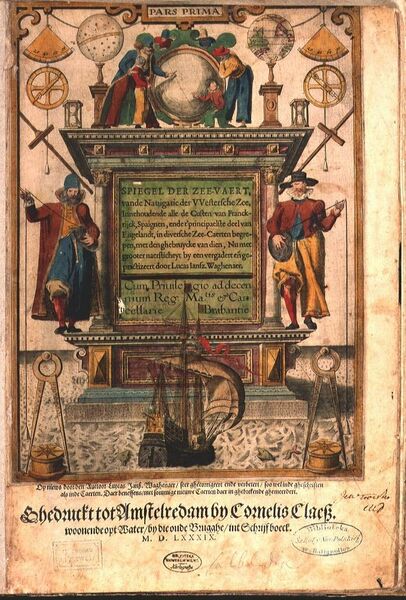 PARS PRIMA
SPIEGEL DER ZEE-VAERT,
vande Navigatie der VVestersche Zee,
Innehoudende alle de Custen van Vranck-
rijck, Spaignen, ende t'principaelste deel van
Engelandt, in diversche Zee-Caerten begre-
pen, met den ghebruycke van dien, Nu met
grooter naersticheyt by een vergadert eñ ge-
practizeert door Lucas Iansz. Waghenaer.
Cum Privilegio ad decen
nium Reg. Ma.tis & Can
cellarie Brabantie
Op nieus door den Aucteur Lucas Jansz. Waghenaer / seer ghecorrigeert ende verbetert / soo wel inde ghescriften
als inde Caerten. Daer beneffens met sommige nieuwe Caerten daer in ghebrekende ghemeerdert.
Ghedruckt tot Amstelredam by Cornelis Claesz.
woonende opt Water / by die oude Brugghe / int Schrijfboeck.
M. D. LXXXIX.
Biblioteka
BIBLIOTEKA